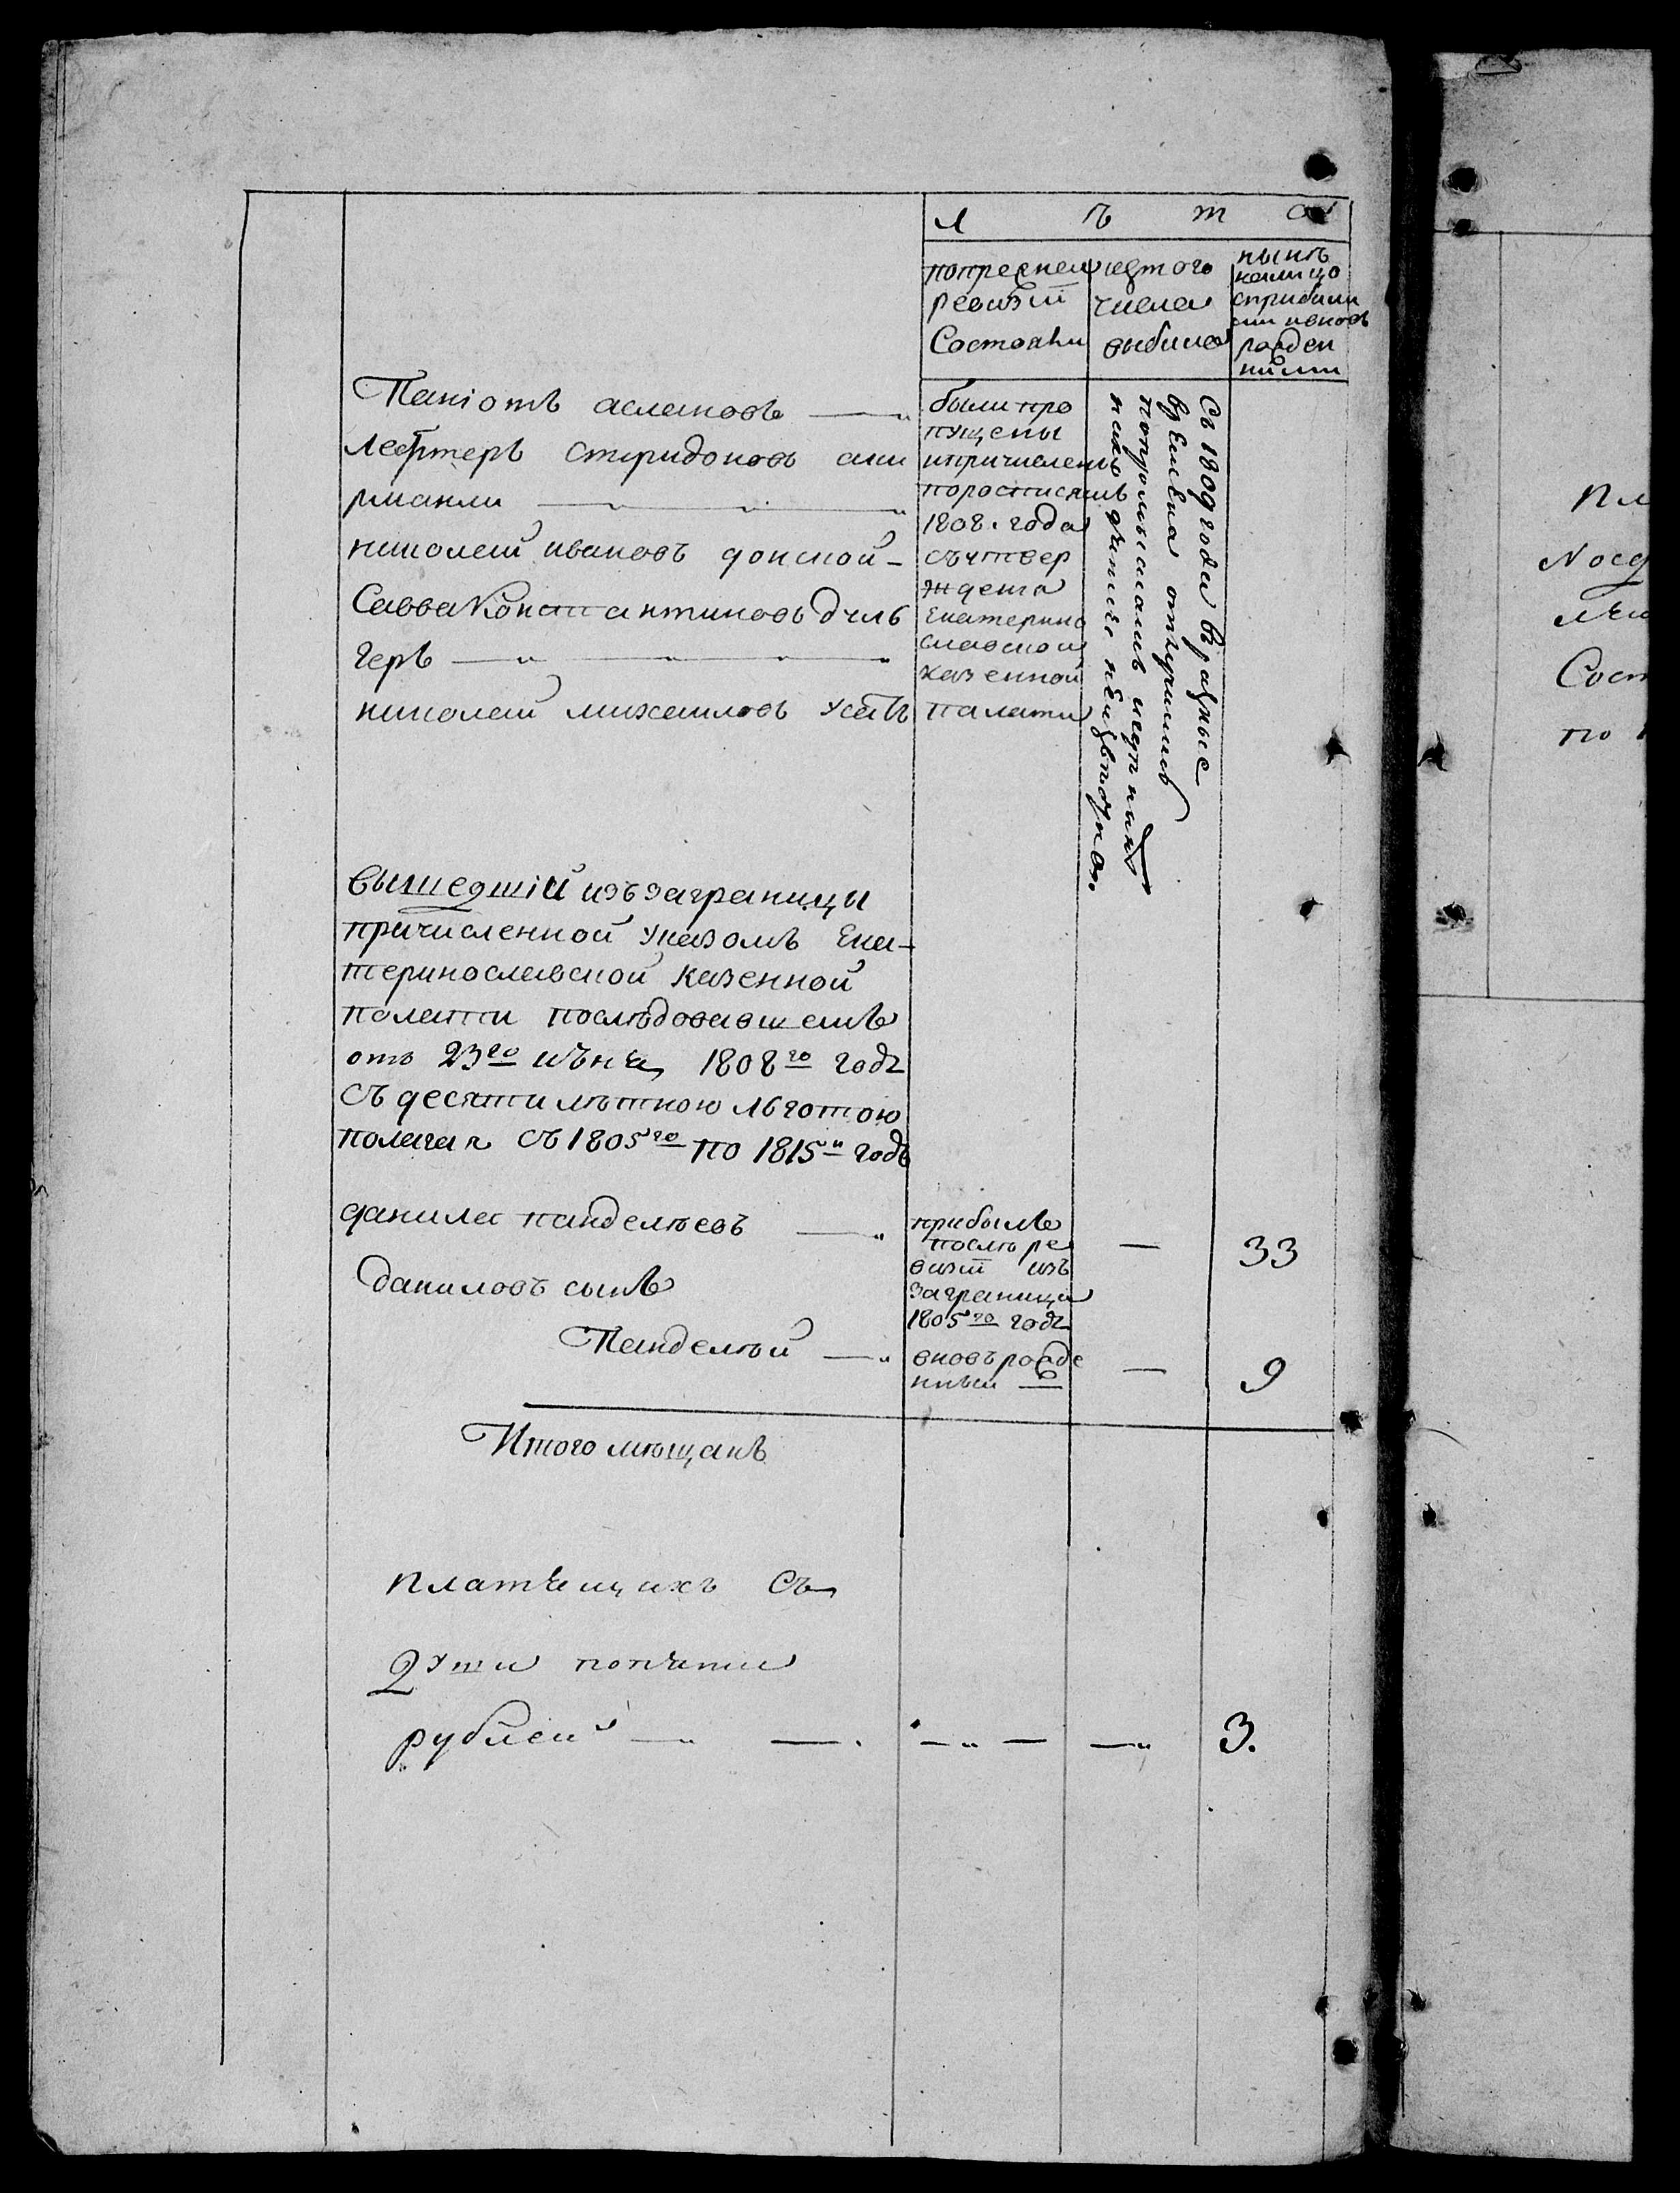 Л ѣ т а
попрежней
ревизіи
Состояли
изтого
числа
выбило
нынѣ
налицо
сприбыли
ми ивновъ
рожден
ными
Паніотъ аслановъ
лефтеръ спиридоновъ али
рманли
николай ивановъ донской
Савва Константиновъ дуль
геръ
николай михаиловъ усть
были про
пущены
ипричислены
поросписямъ
1808. года
съутвер
жденія
Екатерино
славской
казенной
палаты
Съ 1809 года вразные
времена отлучились
попромысламъ
неизвѣстно.
вышедшій иззаграницы
причисленной указомъ Ека-
теринославской казенной
палаты послѣдовавшемъ
отъ 23го 1808го годa
съ десятилѣтною льготою
полагая съ 1805го по 1815й годъ
данила панделѣевъ
прибылъ
послѣ ре
визіи изъ
заграницы
1805го годa
— 33
даниловъ сынъ
Панделѣй
вновърожде
нный
— 9
Итого мѣщанъ
платящихъ съ
души попяти
рублей 3.
Пл
Сост
по